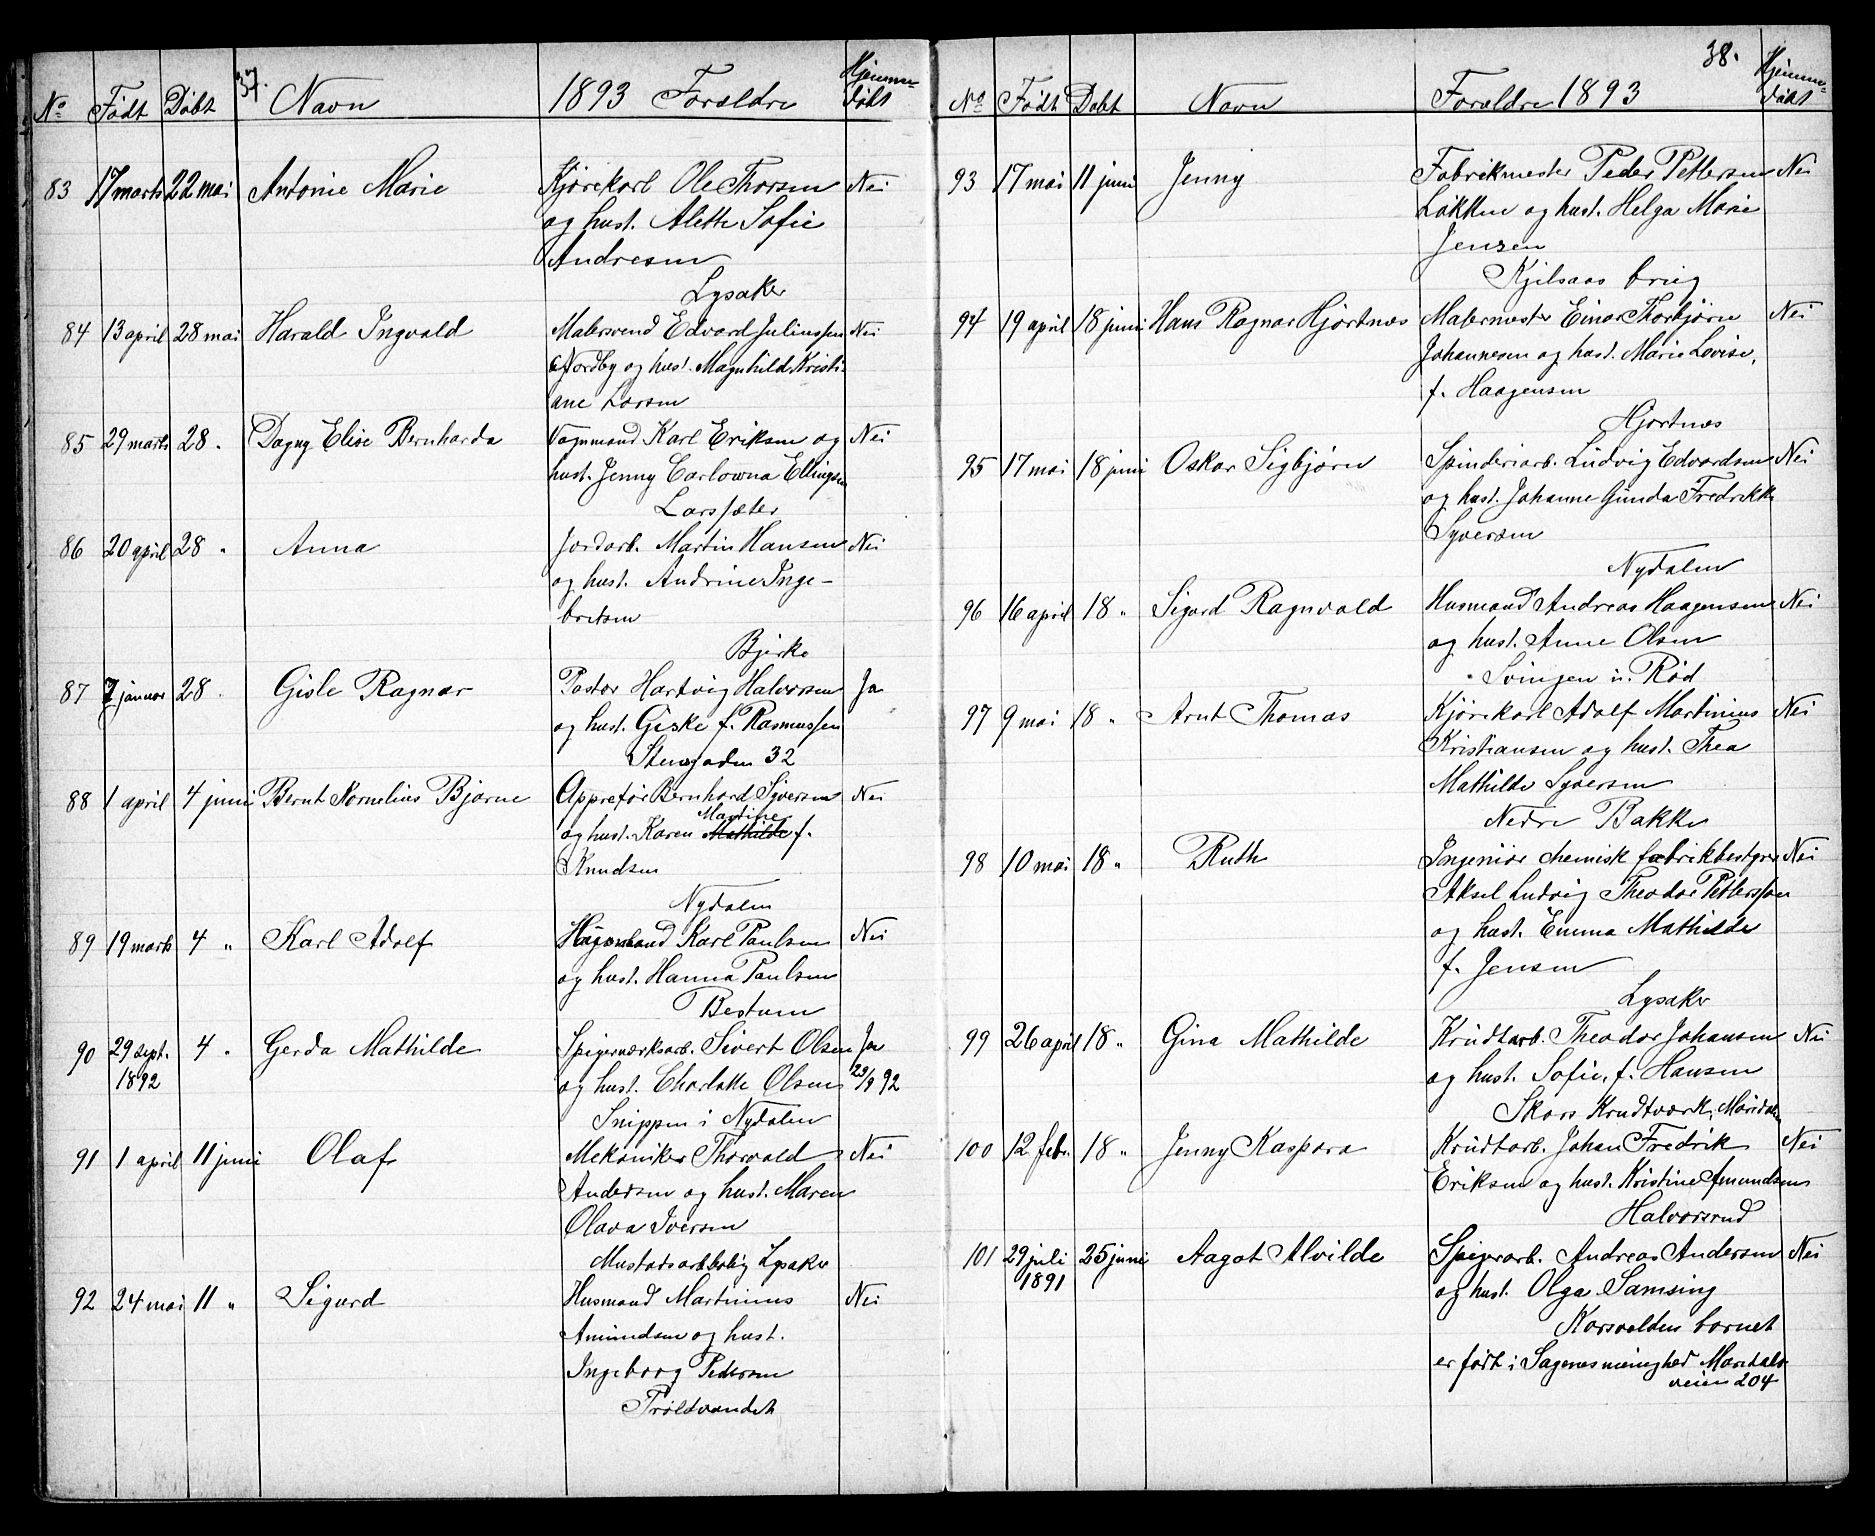 37.
No Født Døbt Navn 1893 Forældre Hjemmedøbt
83 17 marts 22 mai Antonie Marie Kjørekarl Ole Thorsen Nei
og hust. Alette Sofie
Andresen
Lysaker
84 13 april 28 mai Harald Ingvald Malersvend Edvard Juliussen Nei
Nordby og hust. Magnhild Kristi-
ane Larsen
85 29 marts 28 " Dagny Elise Bernharda Vognmand Karl Eriksen og Nei
hust. Jenny Carlowna Ellingsen
Larssæter
86 20 april 28 " Anna Jordarb. Martin Hansen Nei
og hust. Andrine Inge-
bretsen
Bjerke
87 7 januar 28 " Gisle Ragnar Pastor Hartvig Halvorsen Ja
og hust. Giske f. Rasmussen
Stensgaden 32
88 1 april 4 juni Bernt Kornelius Bjarne Appretør Bernhard Syversen Nei
Martine
og hust. Karen Mathilde f.
Knudsen
Nydalen
89 19 marts 4 " Karl Adolf Karl Paulsen Nei
og hust. Hanna Paulsen
Bestum
90 29 sept. 4 " Gerda Mathilde Spigerværksarb. Sivert Olsen Ja
1892 og hust. Charlotte Olsen 29/9 92
Snippen i Nydalen
91 1 april 11 juni Olaf Mekaniker Thorvald Nei
Andersen og hust. Maren
Olava Iversen
Mustadsarbbolig Lysaker
92 24 mai 11 " Sigurd Husmand Martinius Nei
Amundsen og hust.
Ingeborg Pedersen
Troldvandet
38.
No Født Døbt Navn Forældre 1893 Hjemmedøbt
93 17 mai 11 juni Jenny Fabrikmester Peder Pettersen Nei
Løkken og hust. Helga Marie
Jensen
Kjelsaas brug
94 19 april 18 juni Hans Ragnar Hjortnæs Malermester Einar Thorbjørn Nei
Johannesen og hust. Marie Lovise,
f. Haagensen
Hjortnæs
95 17 mai 18 juni Oskar Sigbjørn Spinderiarb. Ludvig Edvardsen Nei
og hust. Johanne Gunda Fredrikke
Syversen
Nydalen
96 16 april 18 " Sigurd Ragnvald Husmand Andreas Haagensen Nei
og hust. Anne Olsen
Svingen u. Rød
97 9 mai 18 " Arnt Thomas Kjørekarl Adolf Martinius Nei
Kristiansen og hust. Thea
Mathilde Syversen
Nedre Bakke
98 10 mai 18 " Ruth Ingeniør chemisk fabrikbestyrer Nei
Aksel Ludvig Theodor Pettersson
og hust. Emma Mathilde
f. Jensen
Lysaker
99 26 april 18 " Gina Mathilde Krudtarb. Theodor Johansen Nei
og hust. Sofie, f. Hansen
Skars Krudtværk, Maridalen
100 12 febr. 18 " Jenny Kaspara Krudtarb. Johan Fredrik Nei
Eriksen og hust. Kristine Amundsen
Halvorsrud
101 29 juli 25 juni Aagot Alvilde Spigerarb. Andreas Andersen Nei
1891 og hust. Olga Samsing
Korsvolden barnet
er født i Sagenes menighed Maridals
veien 204